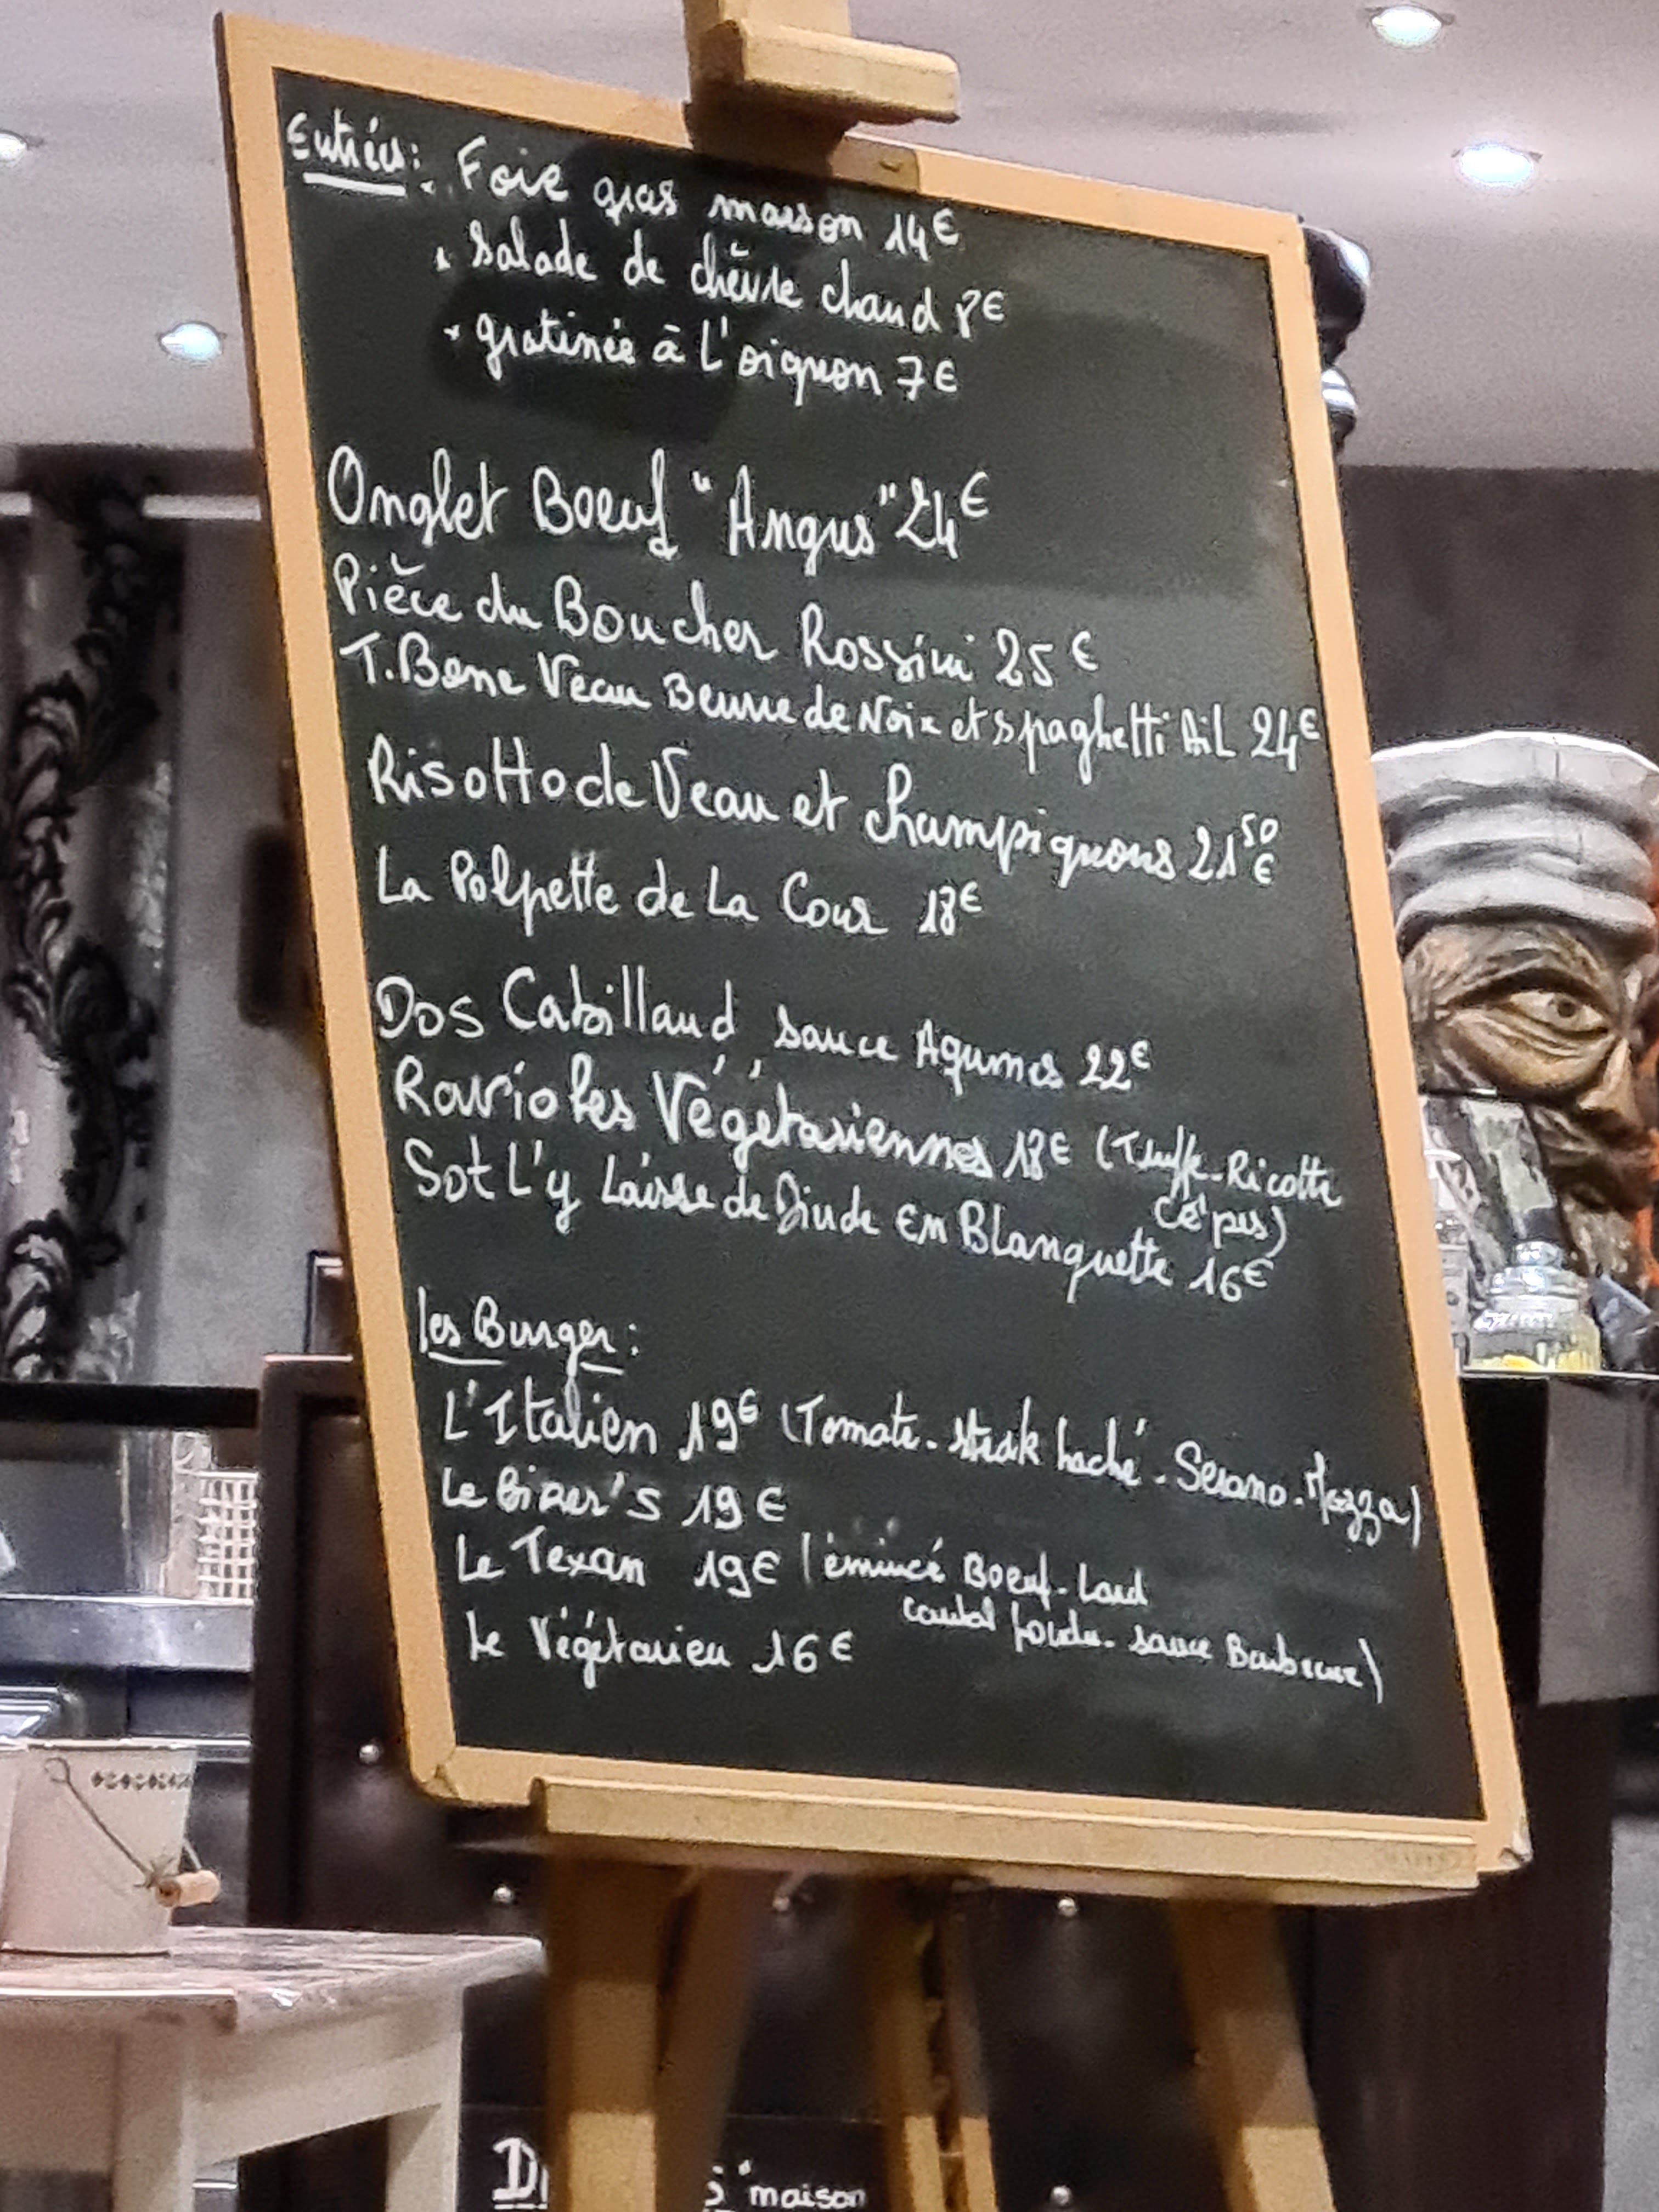 Entrées: . Foie gras maison 14€
. Salade de chèvre chaud 8€
. gratinée à L'oignon 7€
Onglet Boeuf "Angus" 24€
Pièce du Boucher Rossini 25€
T.Bone Veau Beurre de Noix et spaghetti Ail 24€
Risotto de Veau et Champignons 21€50
La Polpette de La Cour 18€
Dos Cabillaud sauce Agumes 22€
Ravioles Végétariennes 18€ (Truffe-Ricotta
Cépes)
Sot L'y Laisse de Dinde En Blanquette 16€
Les Burger:
L'Italien 19€ (Tomate-steak haché-Serano-Mozza)
Le 19€
Le Texan 19€ (émincé Boeuf-Lard
cantal fondu-sauce Barbecue)
Le Végétarien 16€
maison